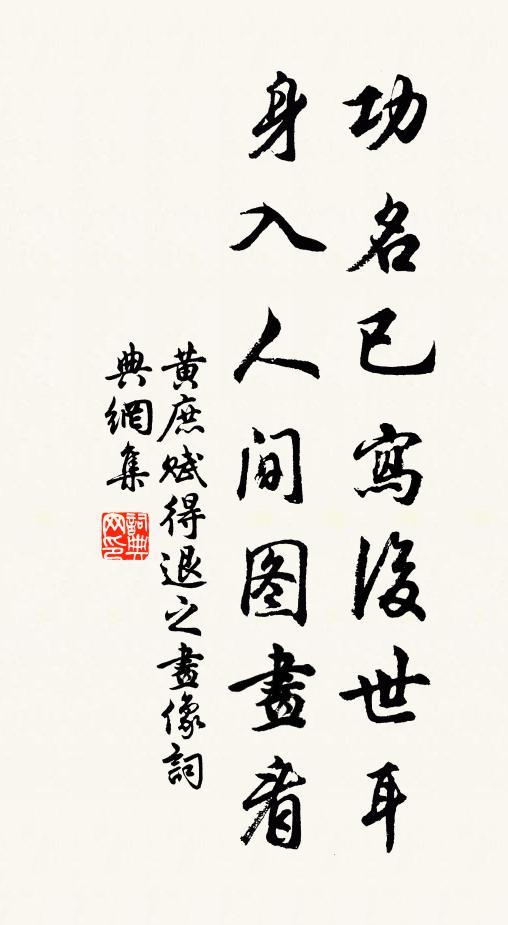 功名已寫後世耳
身入人间图畫看
黃庶赋得退之畫像詞
典網集
詞典网印